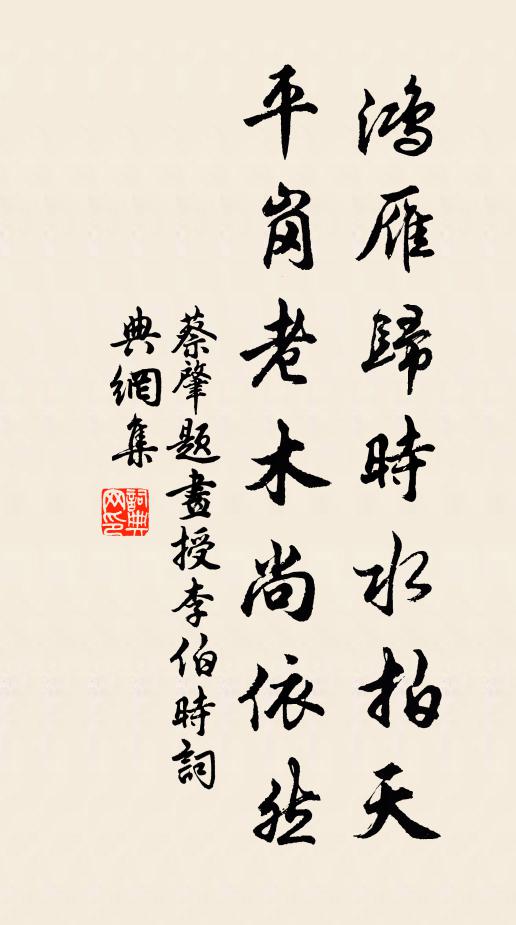 鴻雁歸時水拍天
平崗老木尚依然
蔡肇題畫授李伯時詞
典網集
詞典
网印